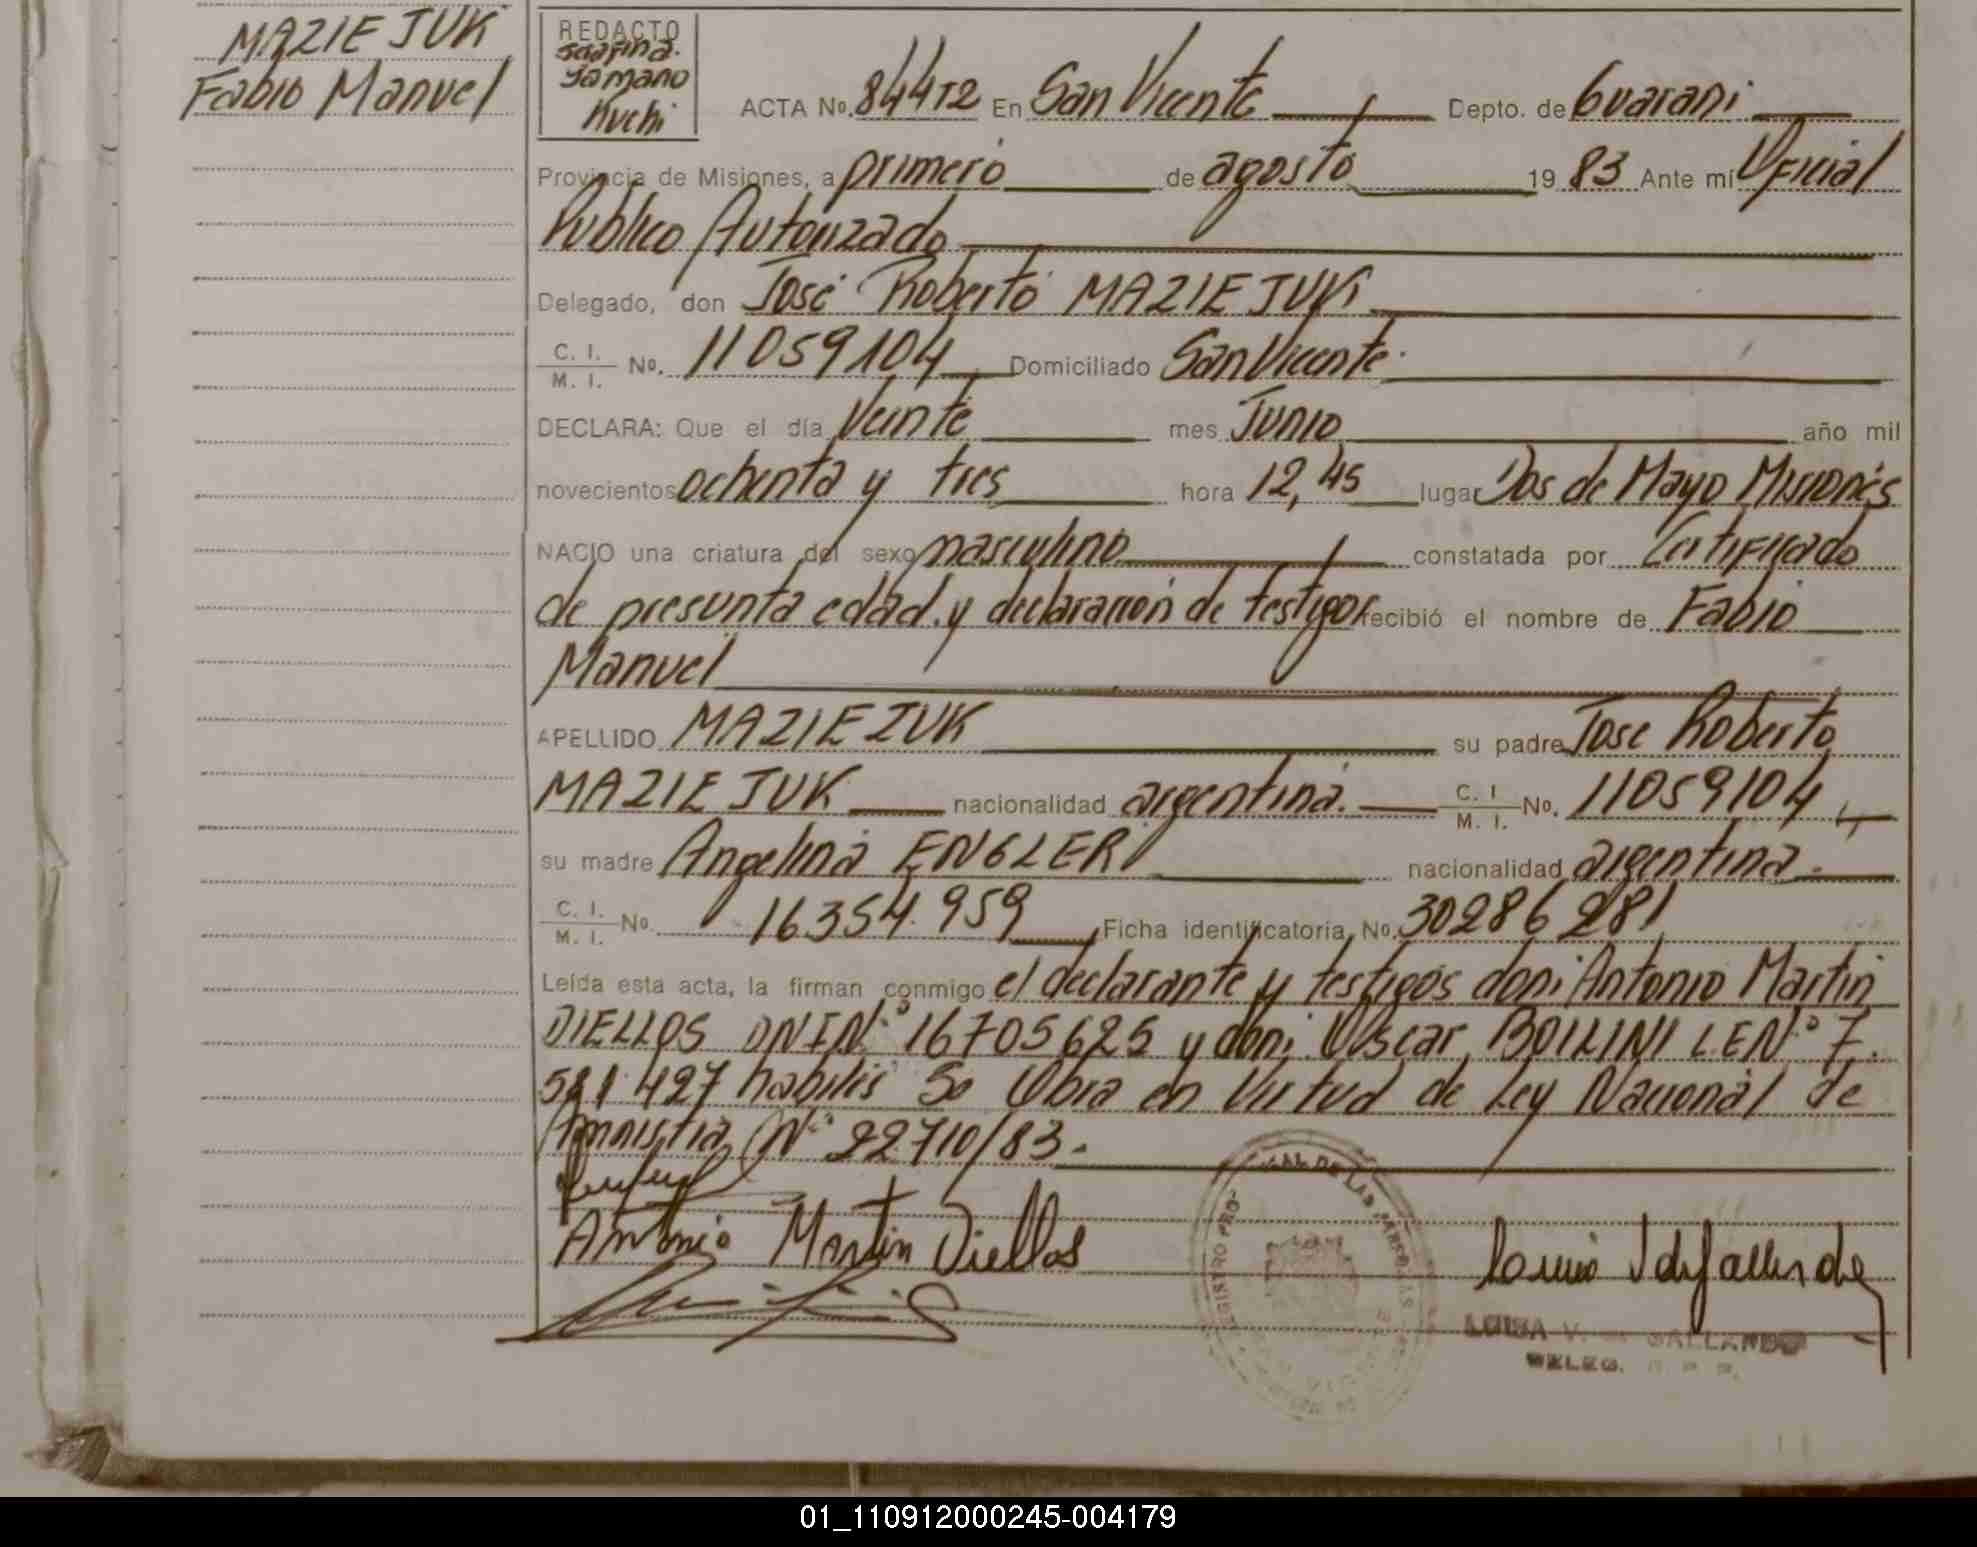 MAZIEJUK
Fabio Manuel
REDACTO
Serafina.
Yamano
Kuchi
ACTA No. 84412 En San Vicente Depto. de Guarani
Provincia de Misiones, a primero de agosto 19 83 Ante mí Oficial
Publico Autorizado
Delegado, don José Roberto MAZIEJUK
C. I.
M. I. No. 11059104 Domiciliado San Vicente.
DECLARA: Que el día Veinte mes Junio año mil
novecientos ochenta y tres hora 12,45 lugar Dos de Mayo Misiones
NACIO una criatura del sexo masculino constatada por Certificado
de presunta edad y declaración de testigos recibió el nombre de Fabio
Manuel
APELLIDO MAZIEJUK su padre Jose Roberto
MAZIEJUK nacionalidad argentina. C. I.
M. I. No. 11059104
su madre Angelina ENGLER nacionalidad argentina.
C. I.
M. I. No. 16354.959 Ficha identificatoria No. 30286281
Leída esta acta, la firman conmigo el declarante y testigos don: Antonio Martin
DIELLOS DNI N° 16705625 y don: Oscar BOILINI L.E N° 7.
581.427 habiles Se Obra en Virtud de Ley Nacional de
Amnistia N° 22710/83.
Antonio Martin Diellos
LUISA V. GALLARDO
DELEG. R. P. P.
01_110912000245-004179